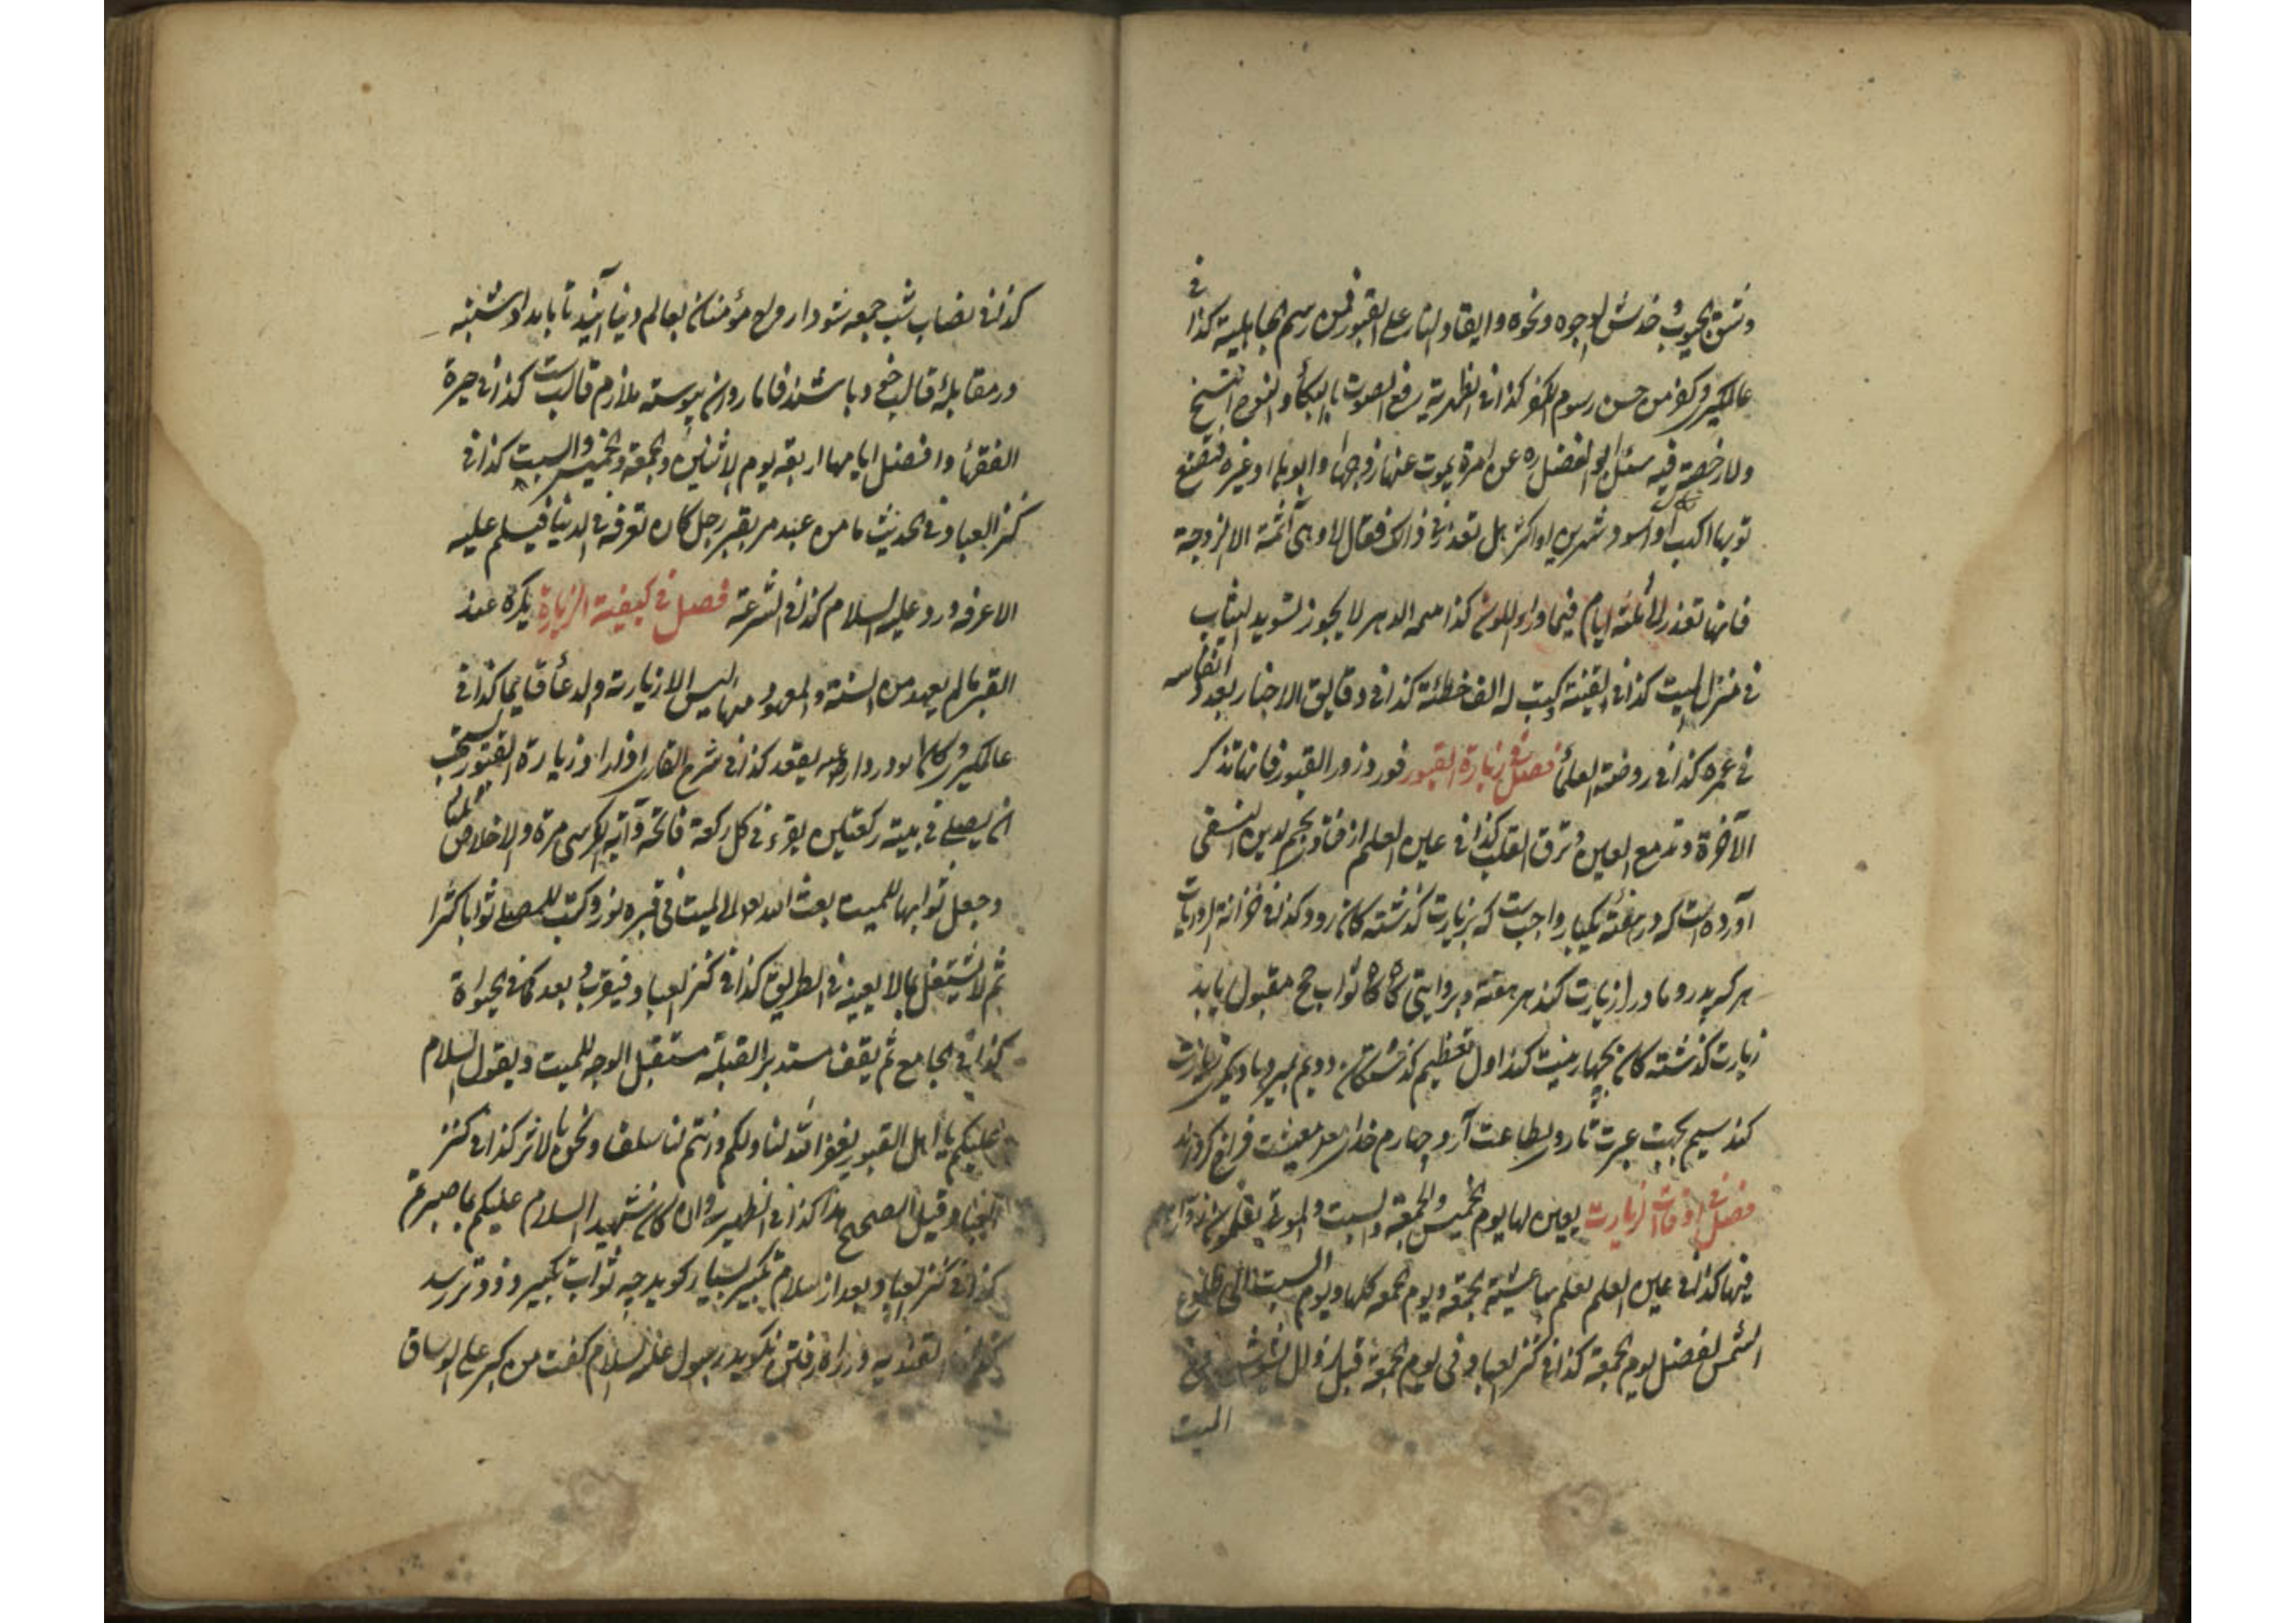 وشق الجيوب خدش الوجوه ونحوه وايقاد النار على القبور فمن رسم الجاهلية كذا في
عالمكيرى وكفن من حسن رسوم الكفر كذا فى الظهيرية رفع الصوت بالبكأ والنوح
ولا رخصة فيه سئل ابو الفضل ره عن امرة يموت عنها زوجها وابوها او غيره فتصبغ
ثوبها اسود شهرين او اكثر هل تعذر فى ذالك فقال لا وهى آثمة الا الزوجة
فانها تعذر الى ثلثة ايام فيما وراء اللون كذا لا يجوز تسويد الثياب
فى منزل الميت كذا فى القنية كتب له الف خطئة كذا فى دقايق الاخبار بعدد انفاسه
فى عمره كذا فى روضة العلمأ فصل فى زيارة القبور فورد زوروا القبور فانها تذكر
الآخرة وتدمع العين وترق القلب كذا فى عين العلم از فتاوى نجم الدين النسفى
آورده است كه در هفته يكبار واجبست كه بزيارت كذشته كان رود كذا فى خزانة الروايات
هر كه پدر و مادر را زيارت كند هر هفته وبروايتى كاه كاه ثواب حج مقبول يابد
زيارت كذشته كان بچهار نيت كند اول تعظيم كذشتكان دويم
كند سيم بجهت عبرت تا رو بطاعت آرد چهارم خداى
فصل فى اوقات الزيارت يعين لها يوم الخميس والجمعة والسبت والموتى يعلمون
فيها كذا فى عين العلم عشية الجمعة ويوم الجمعه كلها ويوم السبت الى طلوع
الشمس لفضل يوم الجمعة كذا فى كنز العباد وفى يوم الجمعة قبل زوال الشمس
الميت
كذا فى نصاب شب جمعه شود ارواح مؤمنان بعالم دنيا آيند تا بامداد شنبه
در مقابلۀ قالب خود باشند فاما روان پيوسته ملازم قالبست كذا فى حيرة
الفقهأ وافضل ايامها اربعة يوم الاثنين والجمعة والخميس والسبت كذا فى
كنز العباد وفى الحديث ما من عبد مر بقبر رجل كان تعرفه فى الدنيا فيسلم عليه
الا عرفه ورد عليه السلام كذا فى الشرعة فصل فى كيفية الزيارة يكره عند
القبر مالم يعهد من السنة والمعهود منها ليس الا زيارته والدعأ قايما كذا فى
عالمكيرى يقعد كذا فى شرح القارى زيارة القبور يستحب
ان يصلى فى بيته ركعتين يقرء فى كل ركعة فاتحة وآية الكرسى مرة والاخلاص ثلثا
وجعل ثوابها للميت بعث الله الى الميت فى قبره نور وكتب للمصلى ثوابا كثيرا
ثم لا يشتغل بما لا يعينه فى الطريق كذا فى كنز العباد فيقرب وبعد كما فى الحيواة
كذا فى الجامع ثم يقف مستدبر القبلة مستقبل الوجه للميت ويقول السلام
عليكم يا اهل القبور يغفر الله لنا ولكم وانتم لنا سلفا ونحن بالاثر كذا فى كنز
العباد وقيل الصحيح هذا كذا فى الظهيرية وان كان شهيدا السلام عليكم بما صبرتم
كذا فى كنز العباد وبعد از سلام تكبير بسيار كويد چه ثواب تكبير زودتر رسد
رسول عليه السلام كفت من كبر على